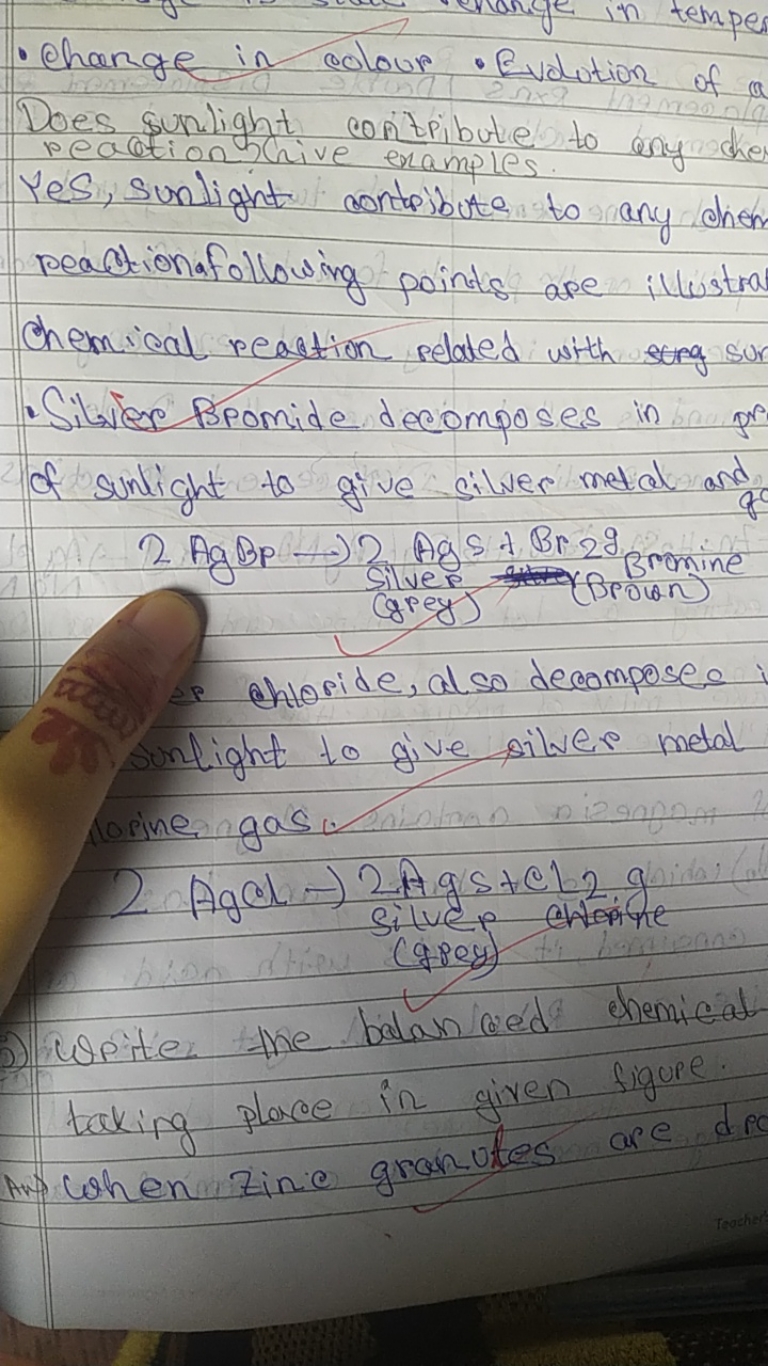 is state change in temper
• Change in colour • Evolution of a
Does sunlight contribute to any che
reaction? Give examples.
Yes, sunlight contribute to any chem
reaction following points are illustra
Chemical reaction related with sun
• Silver Bromide decomposes in pr
of sunlight to give silver metal and
2 AgBr → 2 Ag s + Br 2g
Silver Bromine
(grey) (Brown)
er chloride, also decomposes i
sunlight to give silver metal
lorine gas.
2 AgCl → 2Ag s + Cl2 g
Silver chlorine
(grey)
Write the balanced chemical
taking place in given figure.
Ans) When zinc granules are dro
Teacher's